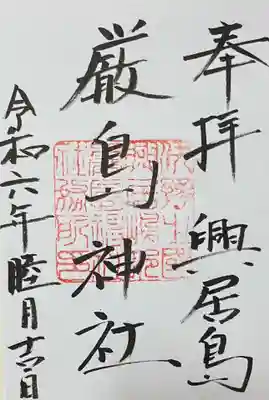 奉拝 興居島
厳島神社
令和六年睦月十六日